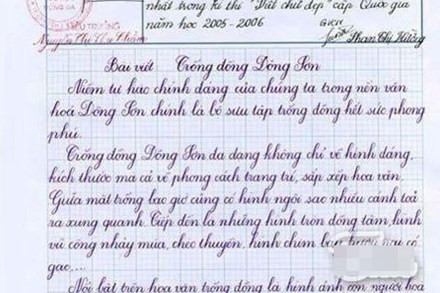 nhất trong kì thi "Viết chữ đẹp" cấp Quốc gia
năm học 2005 - 2006
GVCN
Nguyễn Thị
Phan Thị Hường
Bài viết Trống đồng Đông Sơn
Niềm tự hào chính đáng của chúng ta trong nền văn
hoá Đông Sơn chính là bộ sưu tập trống đồng hết sức phong
phú.
Trống đồng Đông Sơn đa dạng không chỉ về hình dáng,
kích thước mà cả về phong cách trang trí, sắp xếp hoa văn.
Giữa mặt trống lao giờ cũng có hình ngôi sao nhiều cánh toả
ra xung quanh. Tiếp đến là những hình tròn đồng tâm, hình
vũ công nhảy múa, chèo thuyền, hình chim bay, hươu nai có
gạc,...
Nổi bật trên hoa văn trống đồng là hình ảnh con người hoà